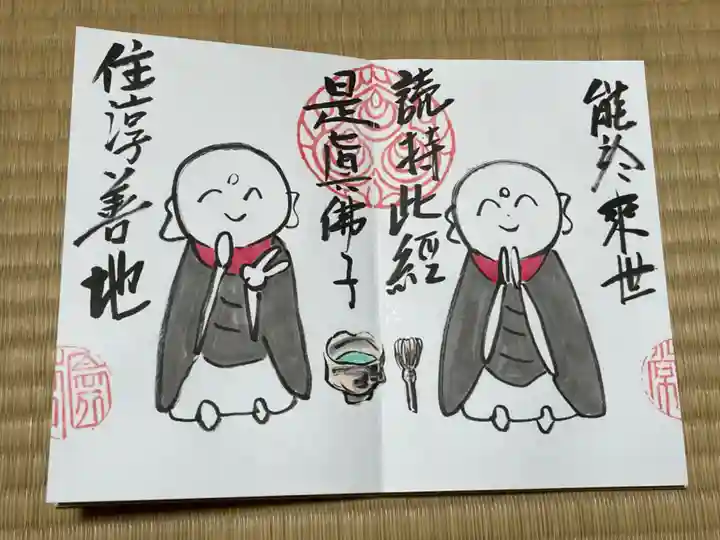 能於來世
読持此經
是眞佛子
住淳善地